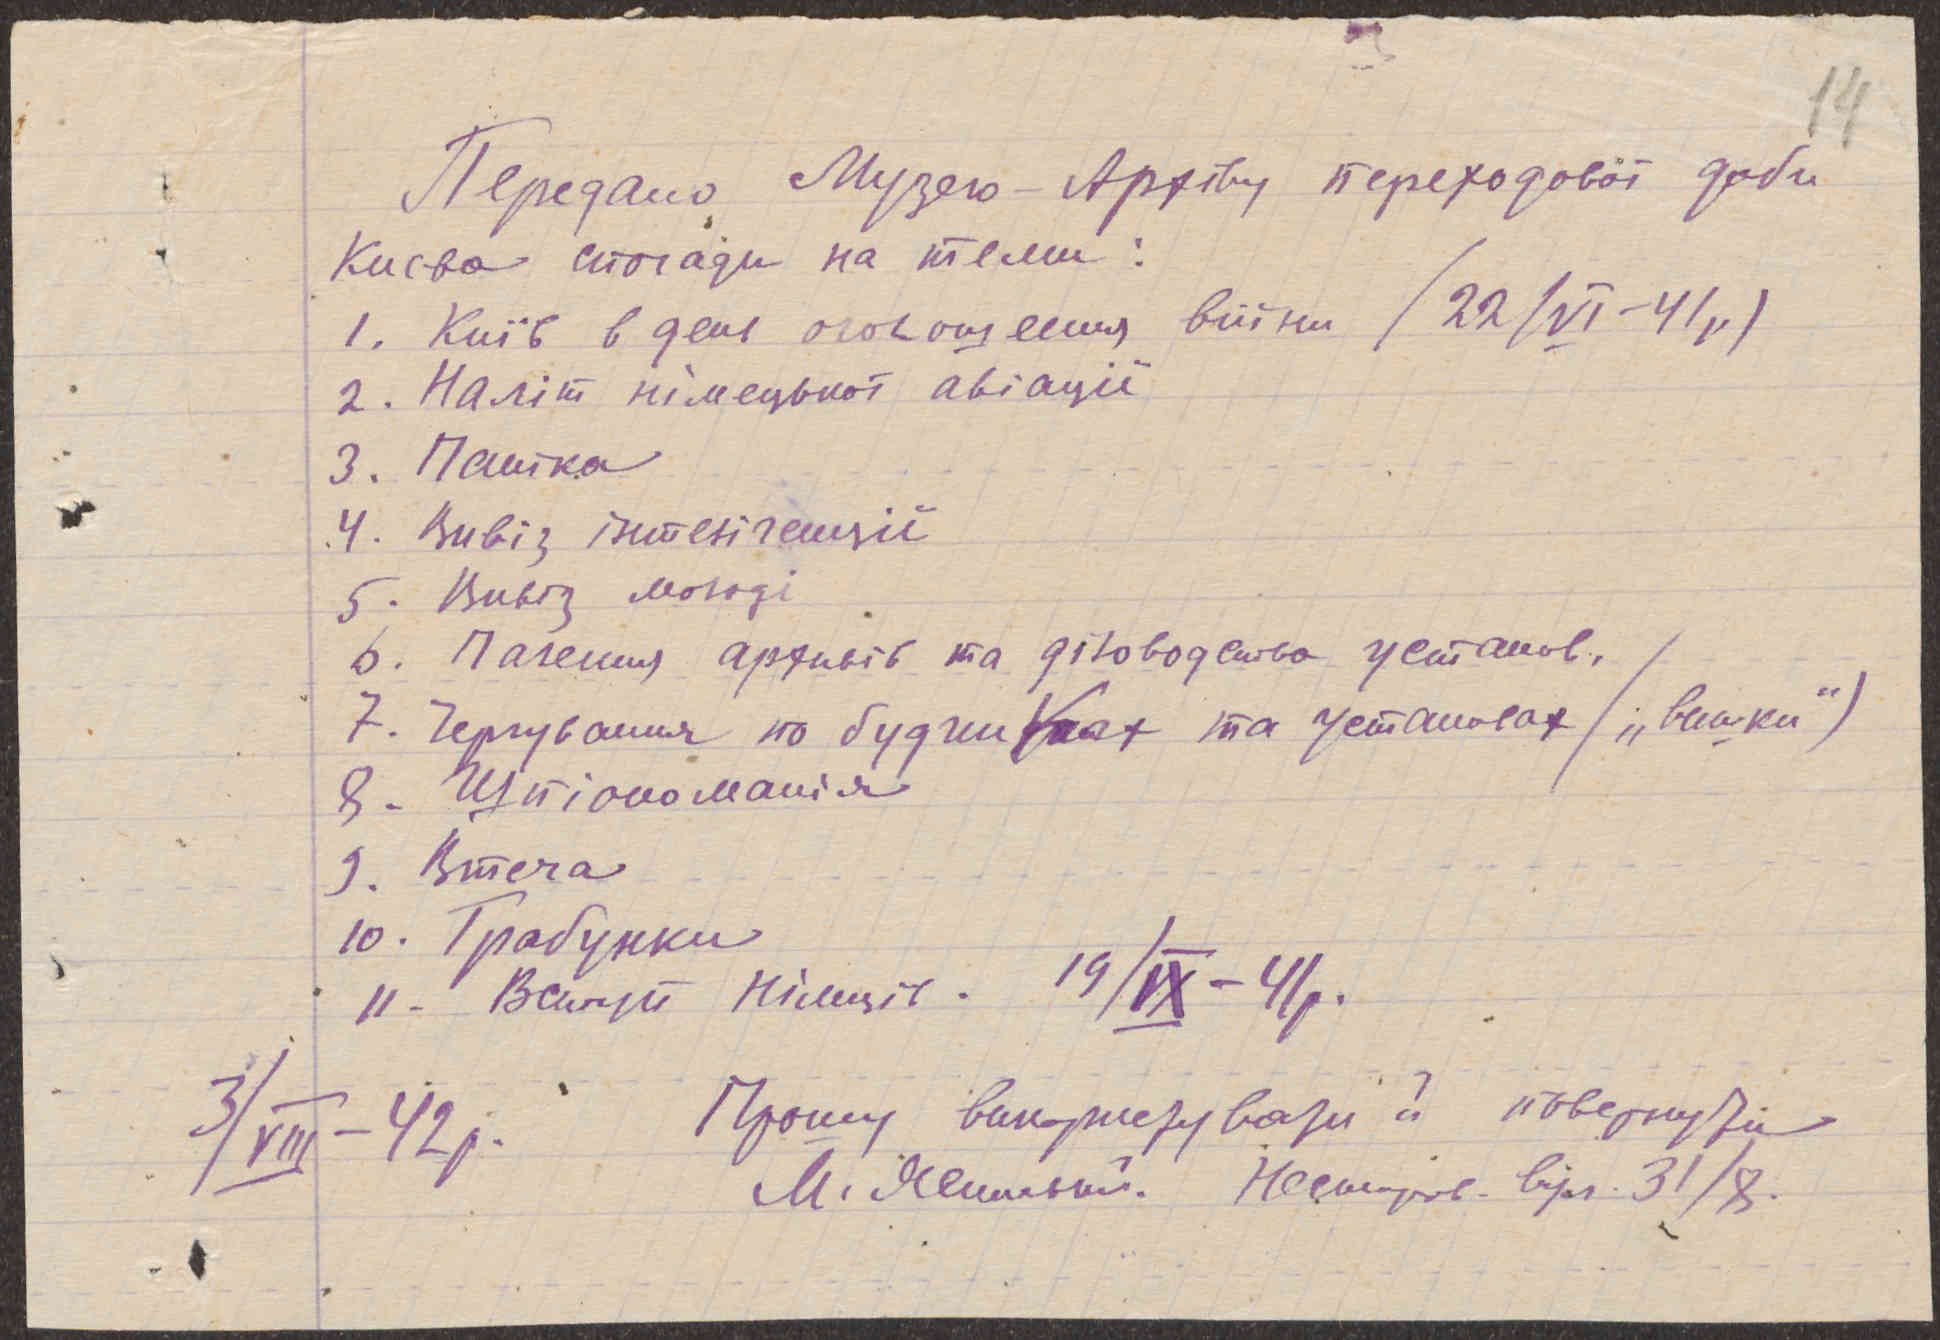 14
Передано Музею-Архіву переходової доби
Києва спогади на теми:
1. Київ в день оголошення війни (22/VI-41р)
2. Наліт німецької авіації
3. Паніка
4. Вивіз інтелігенції
5. Вивіз молоді
6. Палення архивів та діловодства установ.
7. Чергування по будинках та установах („вишки")
8. Шпіономанія
9. Втеча
10. Грабунки
11. Вступ Німців. 19/IX-41р.
3/VIII-42р. Прошу використувати й повернути
М. 31/8.